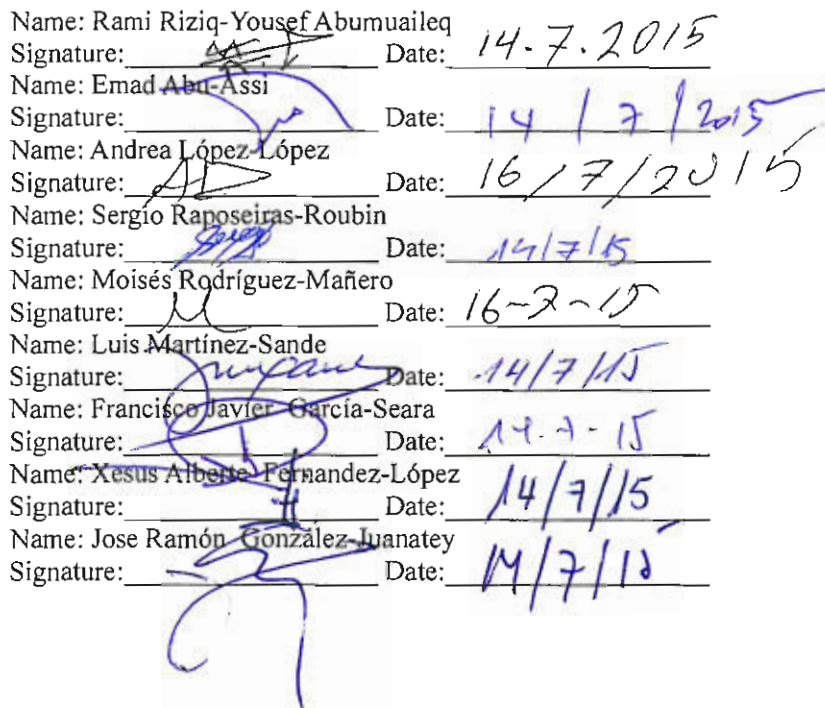 Name: Rami Riziq-Yousef Abumuaileq
Signature: Date: 14.7.2015
Name: Emad Abu-Assi
Signature: Date: 14/7/2015
Name: Andrea López-López
Signature: Date: 16/7/2015
Name: Sergio Raposeiras-Roubin
Signature: Date: 14/7/15
Name: Moisés Rodríguez-Mañero
Signature: Date: 16-7-15
Name: Luis Martínez-Sande
Signature: Date: 14/7/15
Name: Francisco Javier García-Seara
Signature: Date: 14-7-15
Name: Xesus Alberte Fernandez-López
Signature: Date: 14/7/15
Name: Jose Ramón González-Juanatey
Signature: Date: 14/7/15